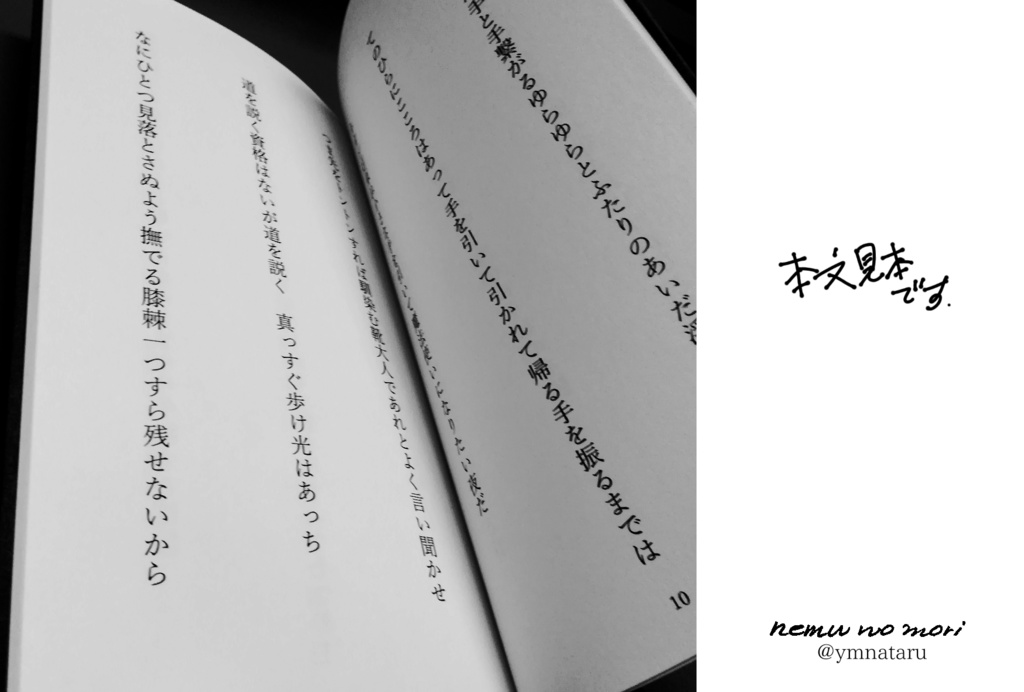 手と手繋がるゆらゆらとふたりのあいだ
てのひらにこころはあって手を引いて引かれて帰る手を振るまでは
魔法使いになりたい夜だ
10
すれば馴染む靴大人であれとよく言い聞かせ
道を説く資格はないが道を説く　真っすぐ歩け光はあっち
なにひとつ見落とさぬよう撫でる膝棘一つすら残せないから
本文見本
です.
nemu no mori
@ymnataru